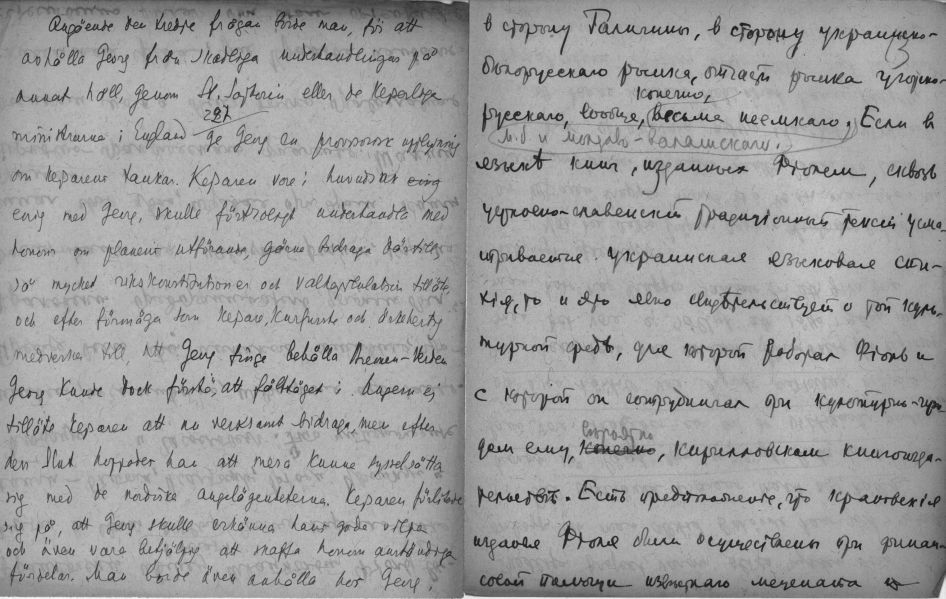 Angående den tredje frågan borde man, för att
avhålla Georg från skadliga underhandlingar på
annat håll, genom St. Saforin eller de kejserliga
287
ministrarna i England ge Georg en provisorisk upplysning
om kejsarens tankar. Kejsaren vore i huvudsak
enig med Georg, skulle förtroligt underhandla med
honom om planens utförande, gärna bidraga därtill
så mycket rikskonstitutionen och valkapitulation tilläte,
och efter förmåga som kejsare, kurfurste och ärkehertig
medverka till, att Georg finge behålla Bremen-Verden
Georg kunde dock förstå, att fälttåget i Ungern ej
tilläte kejsaren att nu verksamt bidraga, men efter
dess slut hoppades han att mera kunna sysselsätta
sig med de nordiska angelägenheterna. Kejsaren förlitade
sig på, att Georg skulle erkänna hans goda vilja
och även vara behjälplig att skaffa honom anständiga
fördelar. Man borde även anhålla hos Georg,
в сторону Галичины, в сторону украинско-
белорусского рынка, отчасти рынка угорско-
конечно,
русского, вообще, весьма неемкого. Если в
м.б. и молдаво-валашского.
языке книг, изданных Фіолем, сквозь
церковно-славянский традиционный текст усма-
тривается украинская языковая сти-
хія, то и это явно свидетельствует о той куль-
турной среде, для которой работал Фіоль и
с которой он сотрудничал при
вероятно
ему, конечно, Кирилловском книгоизда-
тельстве. Есть предположение, что краковскія
издания Фіоля были осуществлены при финан-
совой помощи известного мецената